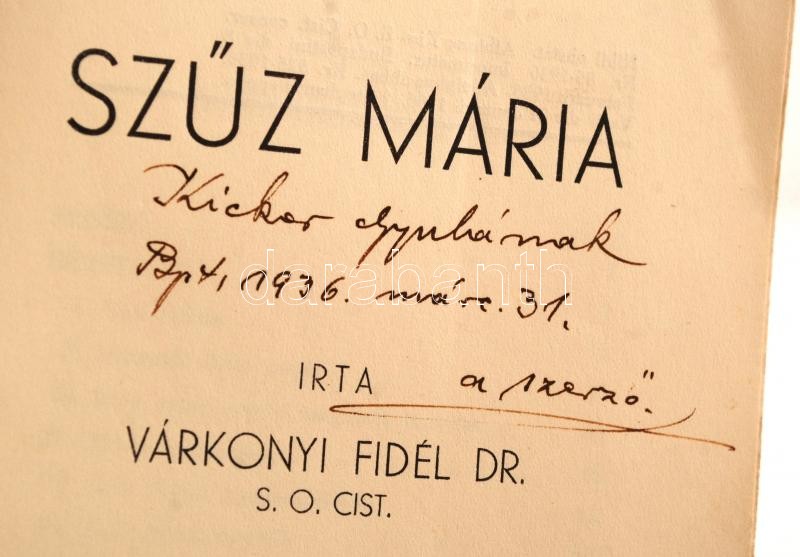 SZŰZ MÁRIA
Kicker Gyulának
Bpt, 1936. márc. 31.
darabanth
IRTA a szerző.
VÁRKONYI FIDÉL DR.
S. O. CIST.